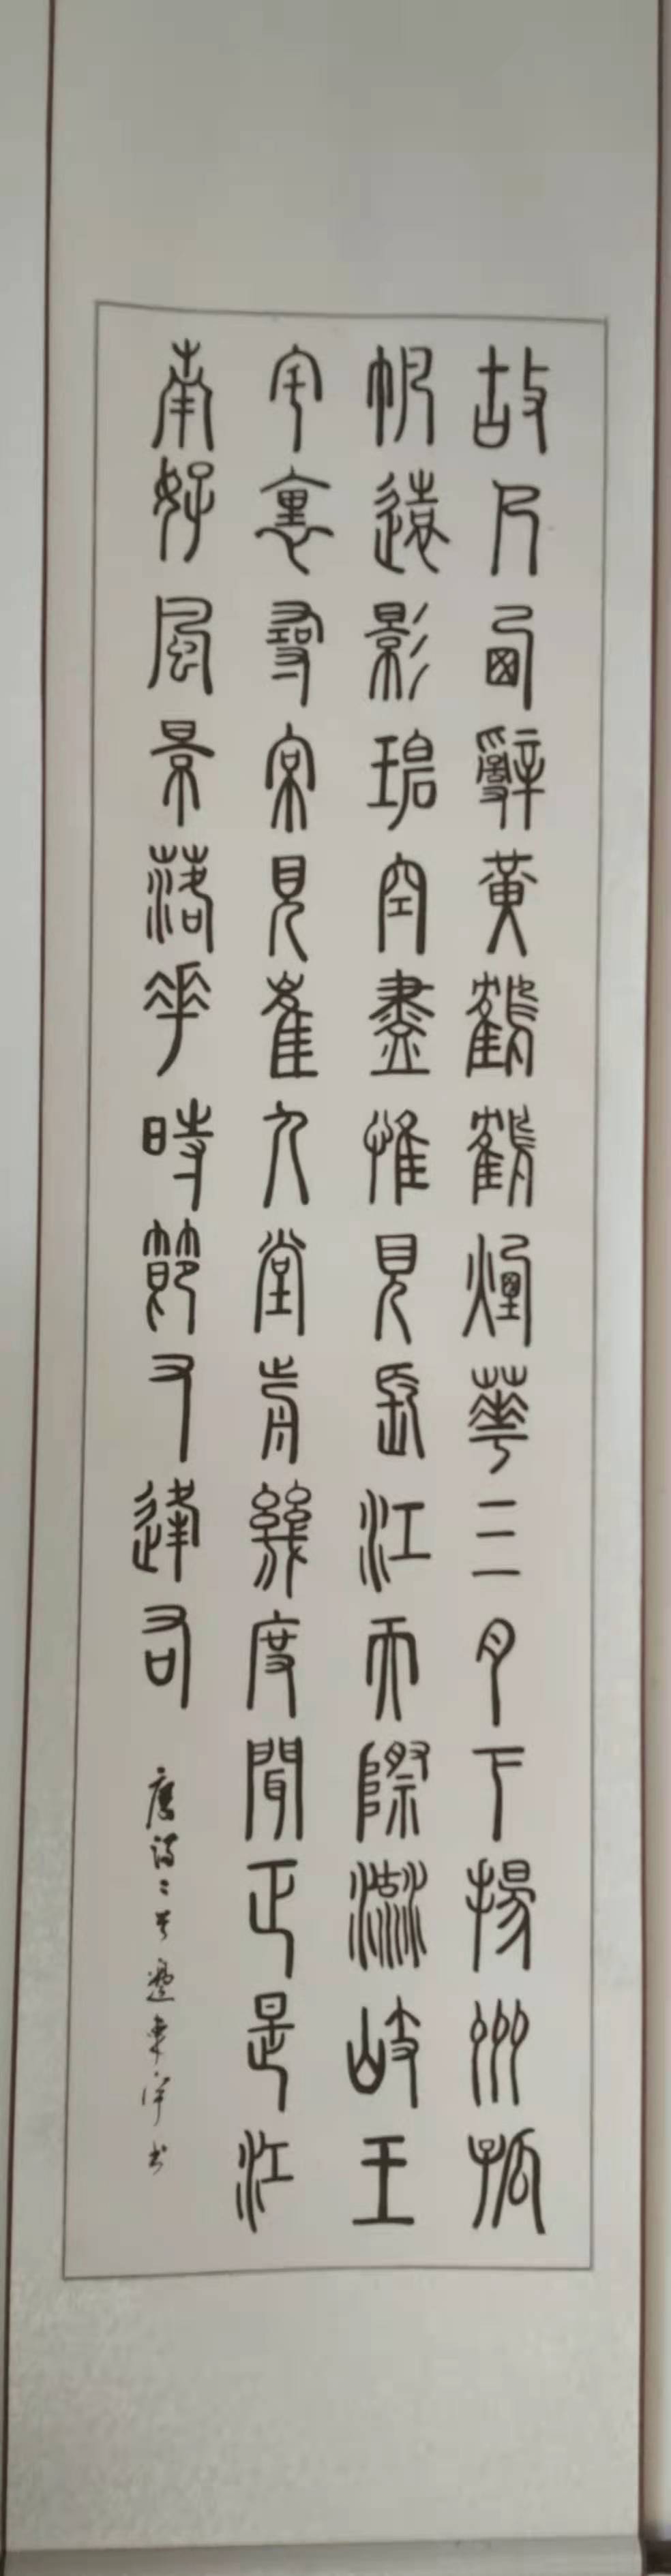 故人西辭黃鶴鶴煙華三月下揚州孤
帆遠影碧空盡惟見長江天際流岐王
宅裏尋常見崔九堂前幾度聞正是江
南好風景落花時節又逢君
唐詩二首 書